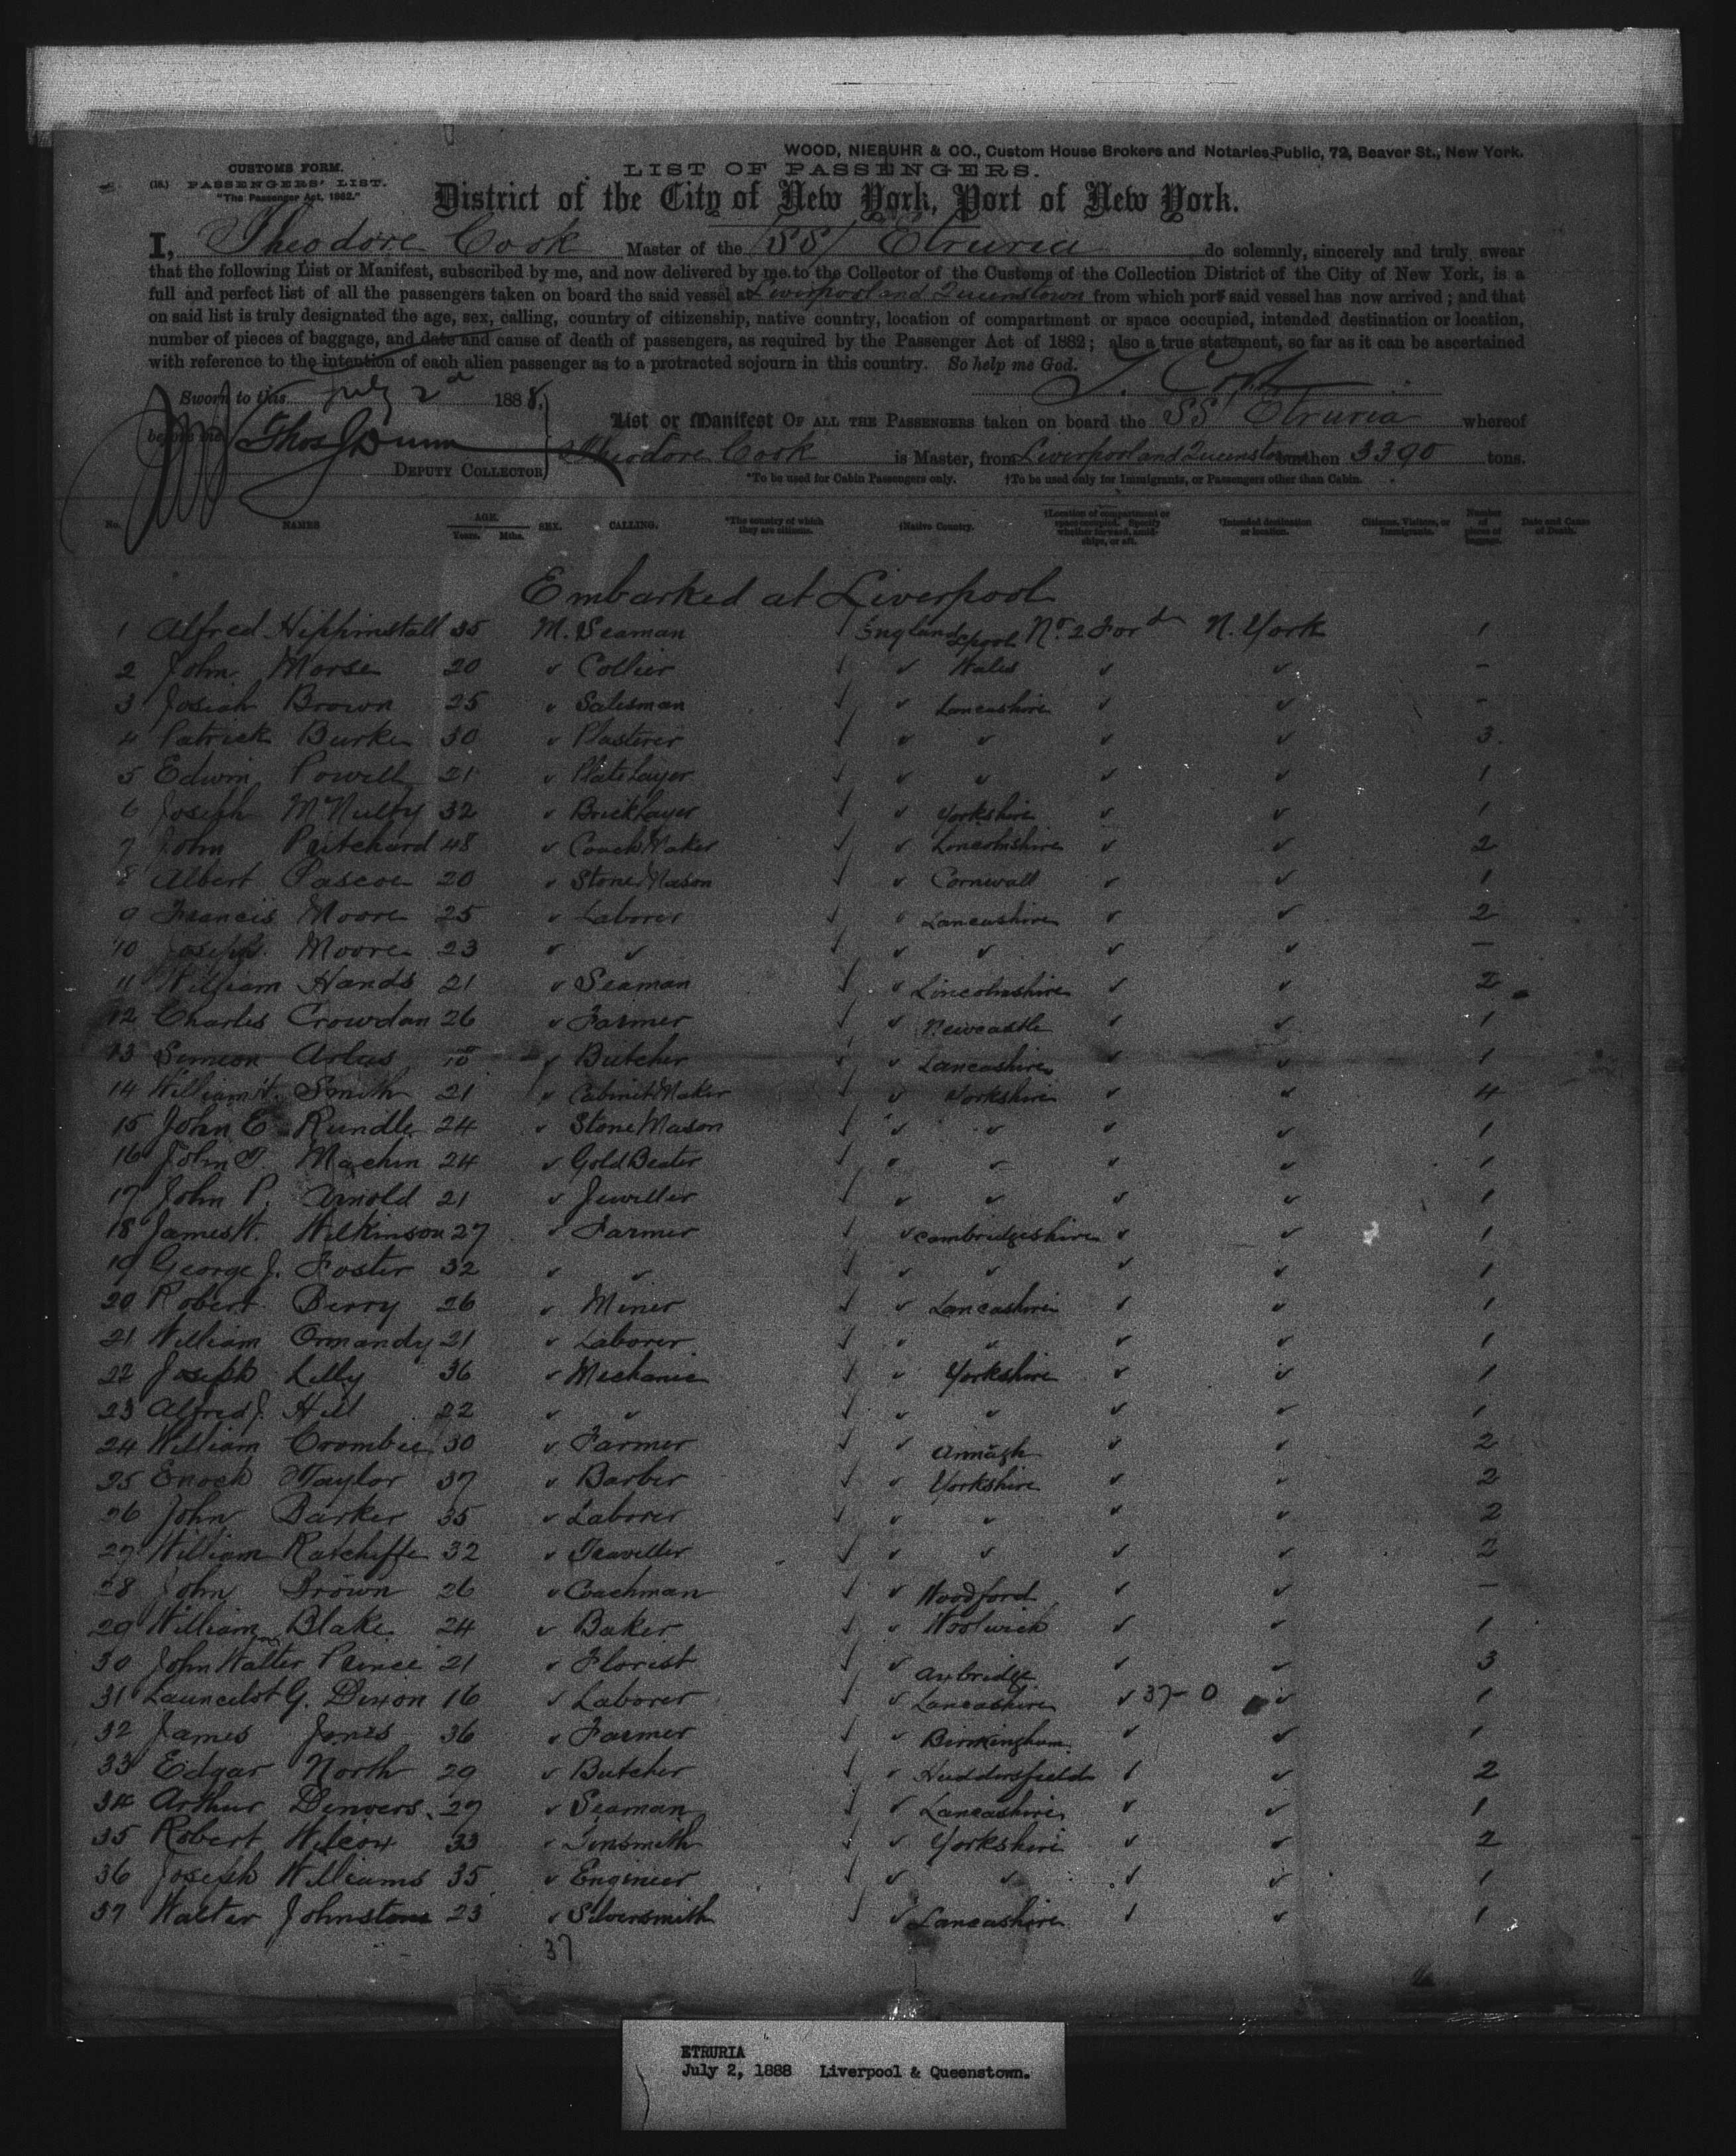 WOOD, NIEBUHR & CO., Custom House Brokers and Notaries Public, 72, Beaver St., New York.
CUSTOMS FORM.
LIST OF PASSENGERS.
(18.) PASSENGERS' LIST.
"The Passenger Act, 1882."
District of the City of New York, Port of New York.
I, Theodore Cook Master of the (SS) Etruria do solemnly, sincerely and truly swear
that the following List or Manifest, subscribed by me, and now delivered by me to the Collector of the Customs of the Collection District of the City of New York, is a
full and perfect list of all the passengers taken on board the said vessel at Liverpool and Queenstown from which port said vessel has now arrived; and that
on said list is truly designated the age, sex, calling, country of citizenship, native country, location of compartment or space occupied, intended destination or location,
number of pieces of baggage, and date and cause of death of passengers, as required by the Passenger Act of 1882; also a true statement, so far as it can be ascertained
with reference to the intention of each alien passenger as to a protracted sojourn in this country. So help me God.
T. Cook
Sworn to this July 2d 1888.
before me Thos Dunn
DEPUTY COLLECTOR
List or Manifest OF ALL THE PASSENGERS taken on board the SS Etruria whereof
Theodore Cook is Master, from Liverpool and Queenstown burthen 3390 tons.
*To be used for Cabin Passengers only. †To be used only for Immigrants, or Passengers other than Cabin.
No. NAMES AGE. Years. Mths. SEX. CALLING. *The country of which they are citizens. †Native Country. †Location of compartment or space occupied. Specify whether forward, amidships, or aft. †Intended destination or location. Citizens, Visitors, or Immigrants. Number of pieces of baggage. Date and Cause of Death.
Embarked at Liverpool
1 Alfred Hippinstall 35 M. Seaman England Lpool No 2 Ford N. York 1
2 John Morse 20 " Collier " Wales " " -
3 Josiah Brown 25 " Salesman " Lancashire " " -
4 Patrick Burke 30 " Plasterer " " " " 3
5 Edwin Powell 21 " Plate Layer " " " " 1
6 Joseph McNulty 32 " Brick Layer " Yorkshire " " 1
7 John Pritchard 48 " Coach Maker " Lincolnshire " " 2
8 Albert Pascoe 20 " Stone Mason " Cornwall " " 1
9 Francis Moore 25 " Laborer " Lancashire " " 2
10 Joseph Moore 23 " " " " " " -
11 William Hands 21 " Seaman " Lincolnshire " " 2
12 Charles Crowdan 26 " Farmer " Newcastle " " 1
13 Simeon " Butcher " Lancashire " " 1
14 William H. Smith 21 " Cabinet Maker " Yorkshire " " 4
15 John E Rundle 24 " Stone Mason " " " " 1
16 John T. Machin 24 " Gold Beater " " " " 1
17 John P. Arnold 21 " Jeweller " " " " 1
18 James H. Wilkinson 27 " Farmer " Cambridgeshire " " 1
19 George J. Foster 32 " " " " " " 1
20 Robert Berry 26 " Miner " Lancashire " " 1
21 William Ormandy 21 " Laborer " " " " 1
22 Joseph Lilly 36 " Mechanic " Yorkshire " " 1
23 Alfred J. Hill 22 " " " " " " 1
24 William Crombie 30 " Farmer " Armagh " " 2
25 Enoch Taylor 37 " Barber " Yorkshire " " 2
26 John Barker 35 " Laborer " " " " 2
27 William Ratcliffe 32 " Traveller " " " " 2
28 John Brown 26 " Coachman " Woodford " " -
29 William Blake 24 " Baker " Woolwich " " 1
30 John Walter Prince 21 " Florist " Axbridge " " 3
31 Launcelot G. Dixon 16 " Laborer " Lancashire " 37-0 " 1
32 James Jones 36 " Farmer " Birmingham " " 1
33 Edgar North 29 " Butcher " Huddersfield " " 2
34 Arthur Denvers 27 " Seaman " Lancashire " " 1
35 Robert Wilcox 33 " Tinsmith " Yorkshire " " 2
36 Joseph Williams 35 " Engineer " " " " 1
37 Walter Johnstone 23 " Silversmith " Lancashire " " 1
37
ETRURIA
July 2, 1888 Liverpool & Queenstown.